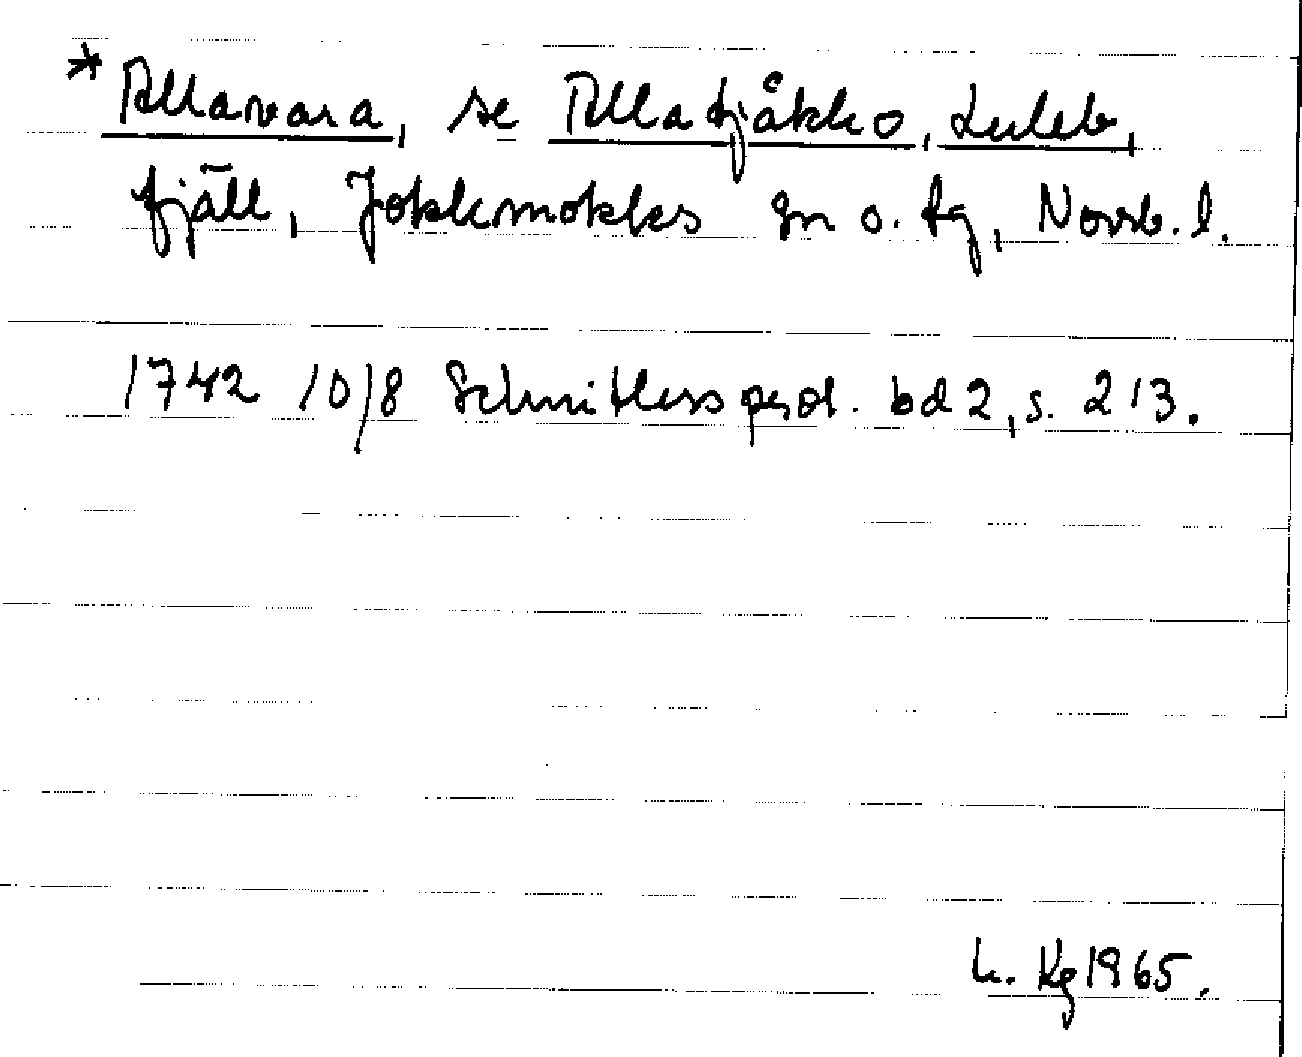 * Allavara, se Allatjåkko, Luleb,
fjäll, Jokkmokks sn o. tg, Norrb. l.
1742 10/8 Schnitlers prot. bd 2, s. 213.
h. Kg 1965.